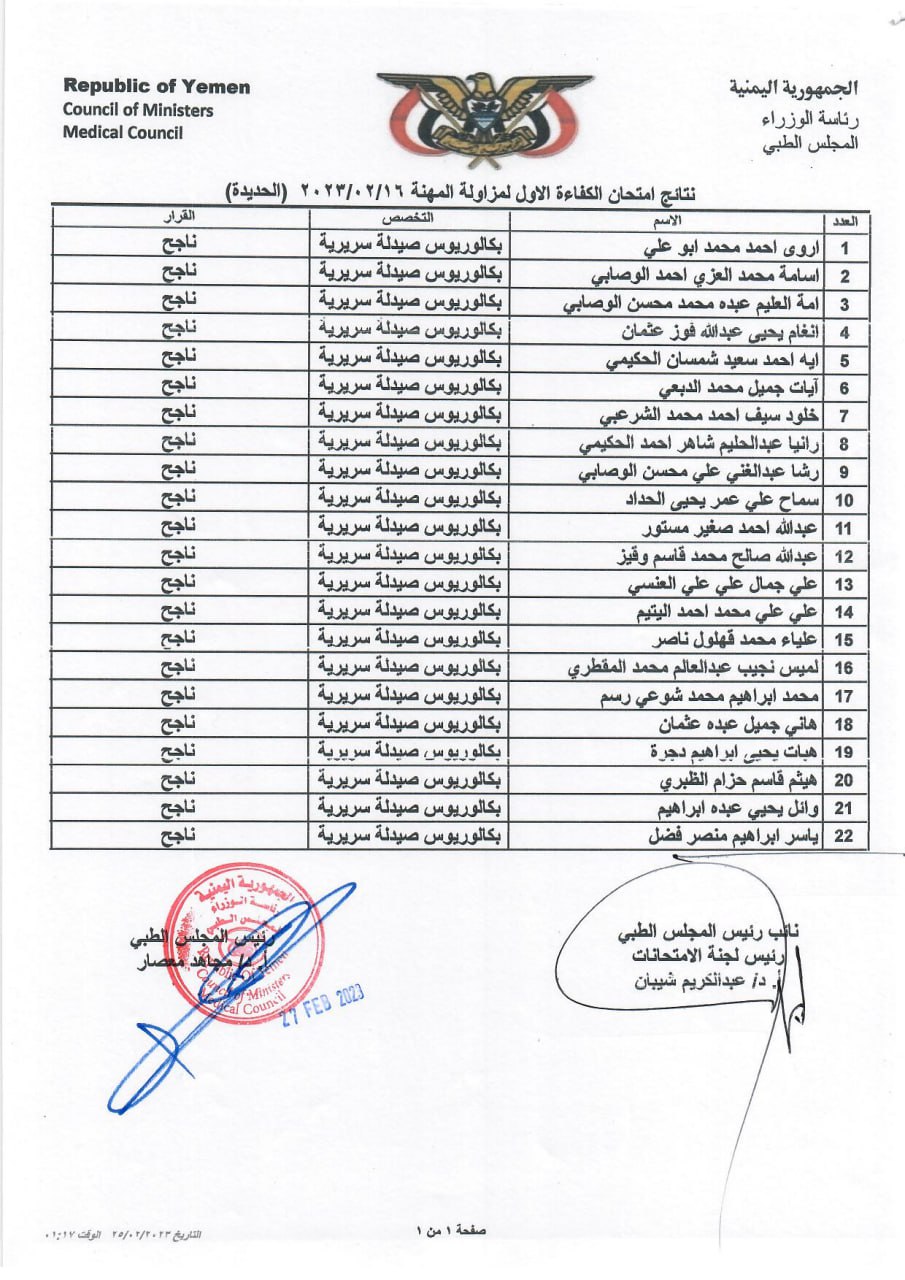 Republic of Yemen
Council of Ministers
Medical Council
الجمهورية اليمنية
رئاسة الوزراء
المجلس الطبي
نتائج امتحان الكفاءة الاول لمزاولة المهنة ٢٠٢٣/٠٢/١٦ (الحديدة)
العدد الاسم التخصص القرار
1 اروى احمد محمد ابو علي بكالوريوس صيدلة سريرية ناجح
2 اسامة محمد العزي احمد الوصابي بكالوريوس صيدلة سريرية ناجح
3 امة العليم عبده محمد محسن الوصابي بكالوريوس صيدلة سريرية ناجح
4 انغام يحيى عبدالله فوز عثمان بكالوريوس صيدلة سريرية ناجح
5 ايه احمد سعيد شمسان الحكيمي بكالوريوس صيدلة سريرية ناجح
6 آيات جميل محمد الدبعي بكالوريوس صيدلة سريرية ناجح
7 خلود سيف احمد محمد الشرعبي بكالوريوس صيدلة سريرية ناجح
8 رانيا عبدالحليم شاهر احمد الحكيمي بكالوريوس صيدلة سريرية ناجح
9 رشا عبدالغني علي محسن الوصابي بكالوريوس صيدلة سريرية ناجح
10 سماح علي عمر يحيى الحداد بكالوريوس صيدلة سريرية ناجح
11 عبدالله احمد صغير مستور بكالوريوس صيدلة سريرية ناجح
12 عبدالله صالح محمد قاسم وقيز بكالوريوس صيدلة سريرية ناجح
13 علي جمال علي علي العنسي بكالوريوس صيدلة سريرية ناجح
14 علي علي محمد احمد اليتيم بكالوريوس صيدلة سريرية ناجح
15 علياء محمد قهلول ناصر بكالوريوس صيدلة سريرية ناجح
16 لميس نجيب عبدالعالم محمد المقطري بكالوريوس صيدلة سريرية ناجح
17 محمد ابراهيم محمد شوعي رسم بكالوريوس صيدلة سريرية ناجح
18 هاني جميل عبده عثمان بكالوريوس صيدلة سريرية ناجح
19 هبات يحيى ابراهيم دجرة بكالوريوس صيدلة سريرية ناجح
20 هيثم قاسم حزام الظبري بكالوريوس صيدلة سريرية ناجح
21 وائل يحيي عبده ابراهيم بكالوريوس صيدلة سريرية ناجح
22 ياسر ابراهيم منصر فضل بكالوريوس صيدلة سريرية ناجح
نائب رئيس المجلس الطبي
رئيس لجنة الامتحانات
أ. د/ عبدالكريم شيبان
رئيس المجلس الطبي
أ. د/ مجاهد معصار
الجمهورية اليمنية
رئاسة الوزراء
المجلس الطبي
Republic of Yemen
Council of Ministers
Medical Council
27 FEB 2023
صفحة ١ من ١
التاريخ ٢٥/٠٢/٢٠٢٣ الوقت ٠١:١٧